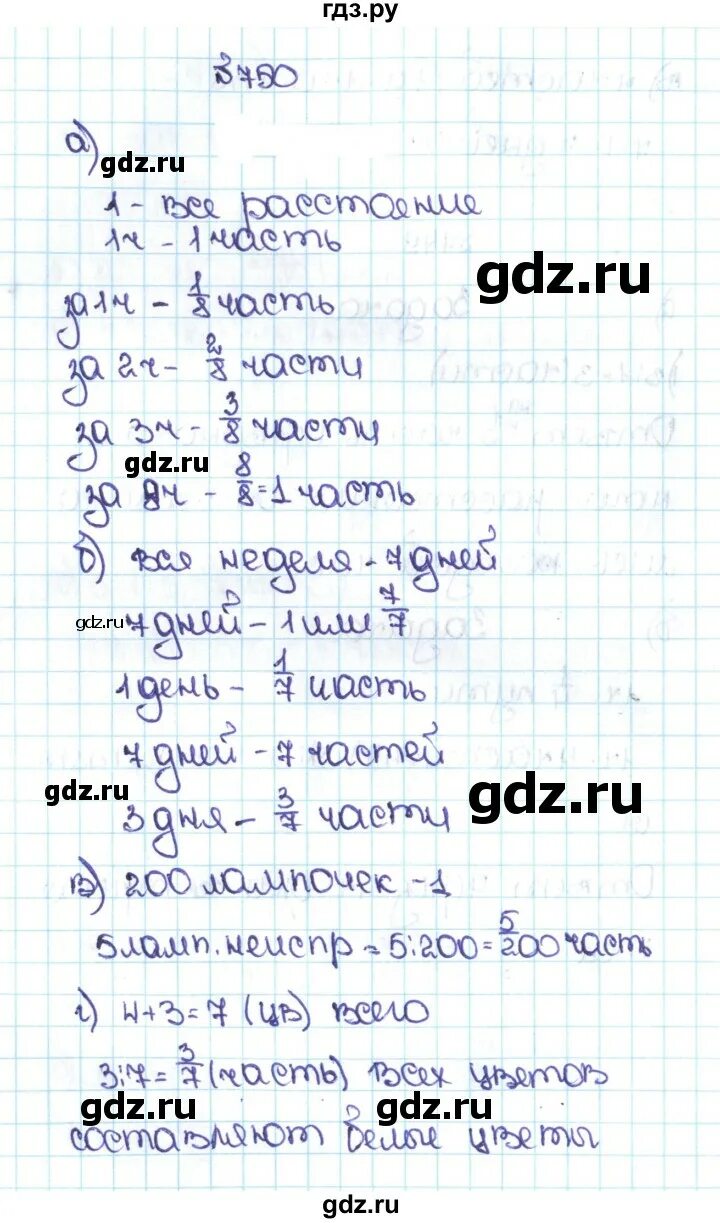 гдз.ру
№750
а)
gdz.ru
1 - все расстояние
1ч - 1 часть
gdz.ru
за 1ч - 1/8 часть
за 2ч - 2/8 части
за 3ч - 3/8 части
gdz.ru
за 8ч - 8/8 = 1 часть
б) вся неделя - 7 дней
gdz.ru
7 дней - 1 или 7/7
1 день - 1/7 часть
7 дней - 7 частей
gdz.ru
gdz.ru
3 дня - 3/7 части
в) 200 лампочек - 1
5 ламп. неиспр = 5:200 = 5/200 часть
г) 4+3=7 (цв) всего
3:7 = 3/7 (часть) всех цветов
gdz.ru
gdz.ru
составляют белые цветы
gdz.ru